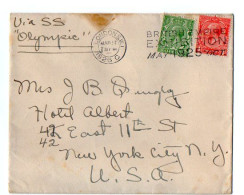 Via SS
"Olympic"
BRITISH EMPIRE
EXHIBITION
MAY 1925 OCT
Mrs J B
Hotel Albert
42 East 11th St
New York City N.Y.
U.S.A.